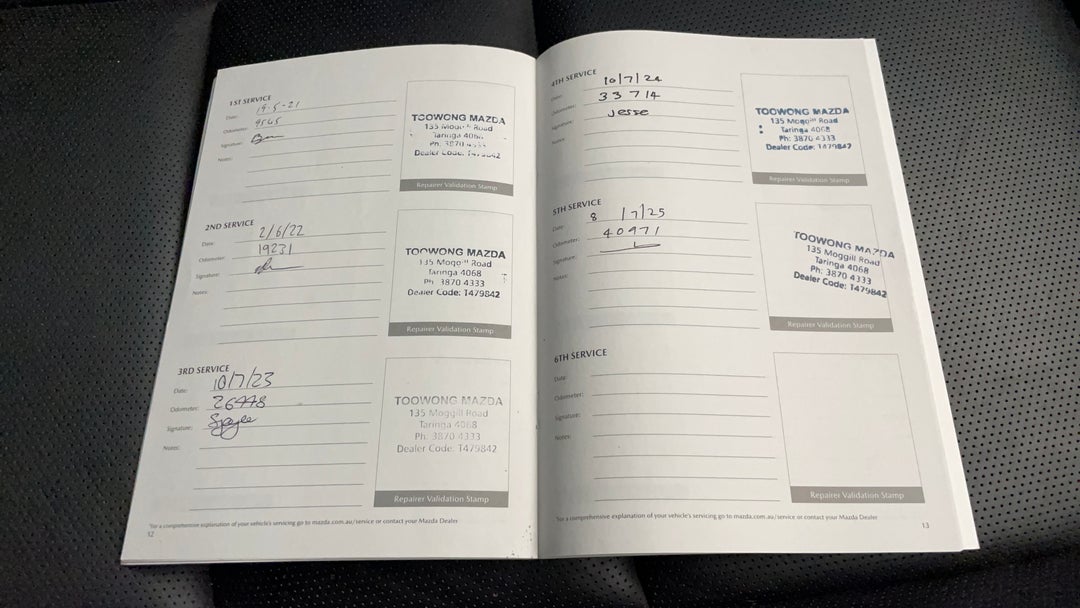 1ST SERVICE
Date: 19-5-21
Odometer: 9565
Signature:
Notes:
TOOWONG MAZDA
135 Road
Taringa 4068
Ph: 3870
Dealer Code: 1479842
Repairer Validation Stamp
2ND SERVICE
Date: 2/6/22
Odometer: 19231
Signature:
Notes:
TOOWONG MAZDA
135 Road
Taringa 4068
Ph: 3870 4333
Dealer Code: 1479842
Repairer Validation Stamp
3RD SERVICE
Date: 10/7/23
Odometer: 26448
Signature:
Notes:
TOOWONG MAZDA
135 Moggill Road
Taringa 4068
Ph: 3870 4333
Dealer Code: 1479842
Repairer Validation Stamp
*For a comprehensive explanation of your vehicle's servicing go to mazda.com.au/service or contact your Mazda Dealer
12
4TH SERVICE
Date: 10/7/24
Odometer: 33714
Signature: Jesse
Notes:
TOOWONG MAZDA
135 Moggill Road
Taringa 4068
Ph: 3870 4333
Dealer Code: 1479842
Repairer Validation Stamp
5TH SERVICE
Date: 8/7/25
Odometer: 40971
Signature:
Notes:
TOOWONG MAZDA
135 Moggill Road
Taringa 4068
Ph: 3870 4333
Dealer Code: 1479842
Repairer Validation Stamp
6TH SERVICE
Date:
Odometer:
Signature:
Notes:
Repairer Validation Stamp
*For a comprehensive explanation of your vehicle's servicing go to mazda.com.au/service or contact your Mazda Dealer
13